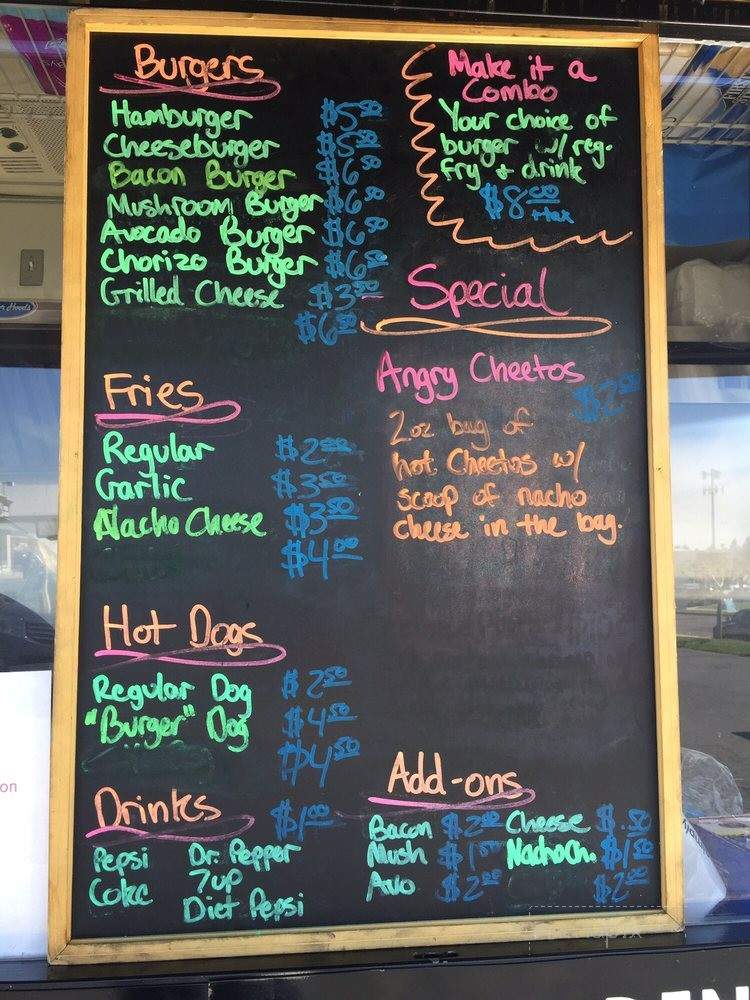 Burgers
Hamburger $5.50
Cheeseburger $5.50
Bacon Burger $6.50
Mushroom Burger $6.50
Avocado Burger $6.50
Chorizo Burger $6.50
Grilled Cheese $3.50
$6.50
Fries
Regular $2.50
Garlic $3.50
Nacho Cheese $3.50
$4.00
Hot Dogs
Regular Dog $2.50
"Burger" Dog $4.50
$4.50
Drinks $1.00
Pepsi Dr. Pepper
Coke 7up
Diet Pepsi
Make it a
Combo
Your choice of
burger w/ reg.
fry + drink
$8.00
+tax
Special
Angry Cheetos
$2.00
2oz bag of
hot Cheetos w/
scoop of nacho
cheese in the bag.
Add-ons
Bacon $2.00 Cheese $.50
Mush $1.50 Nacho Ch. $1.50
Avo $2.00 $2.00
on